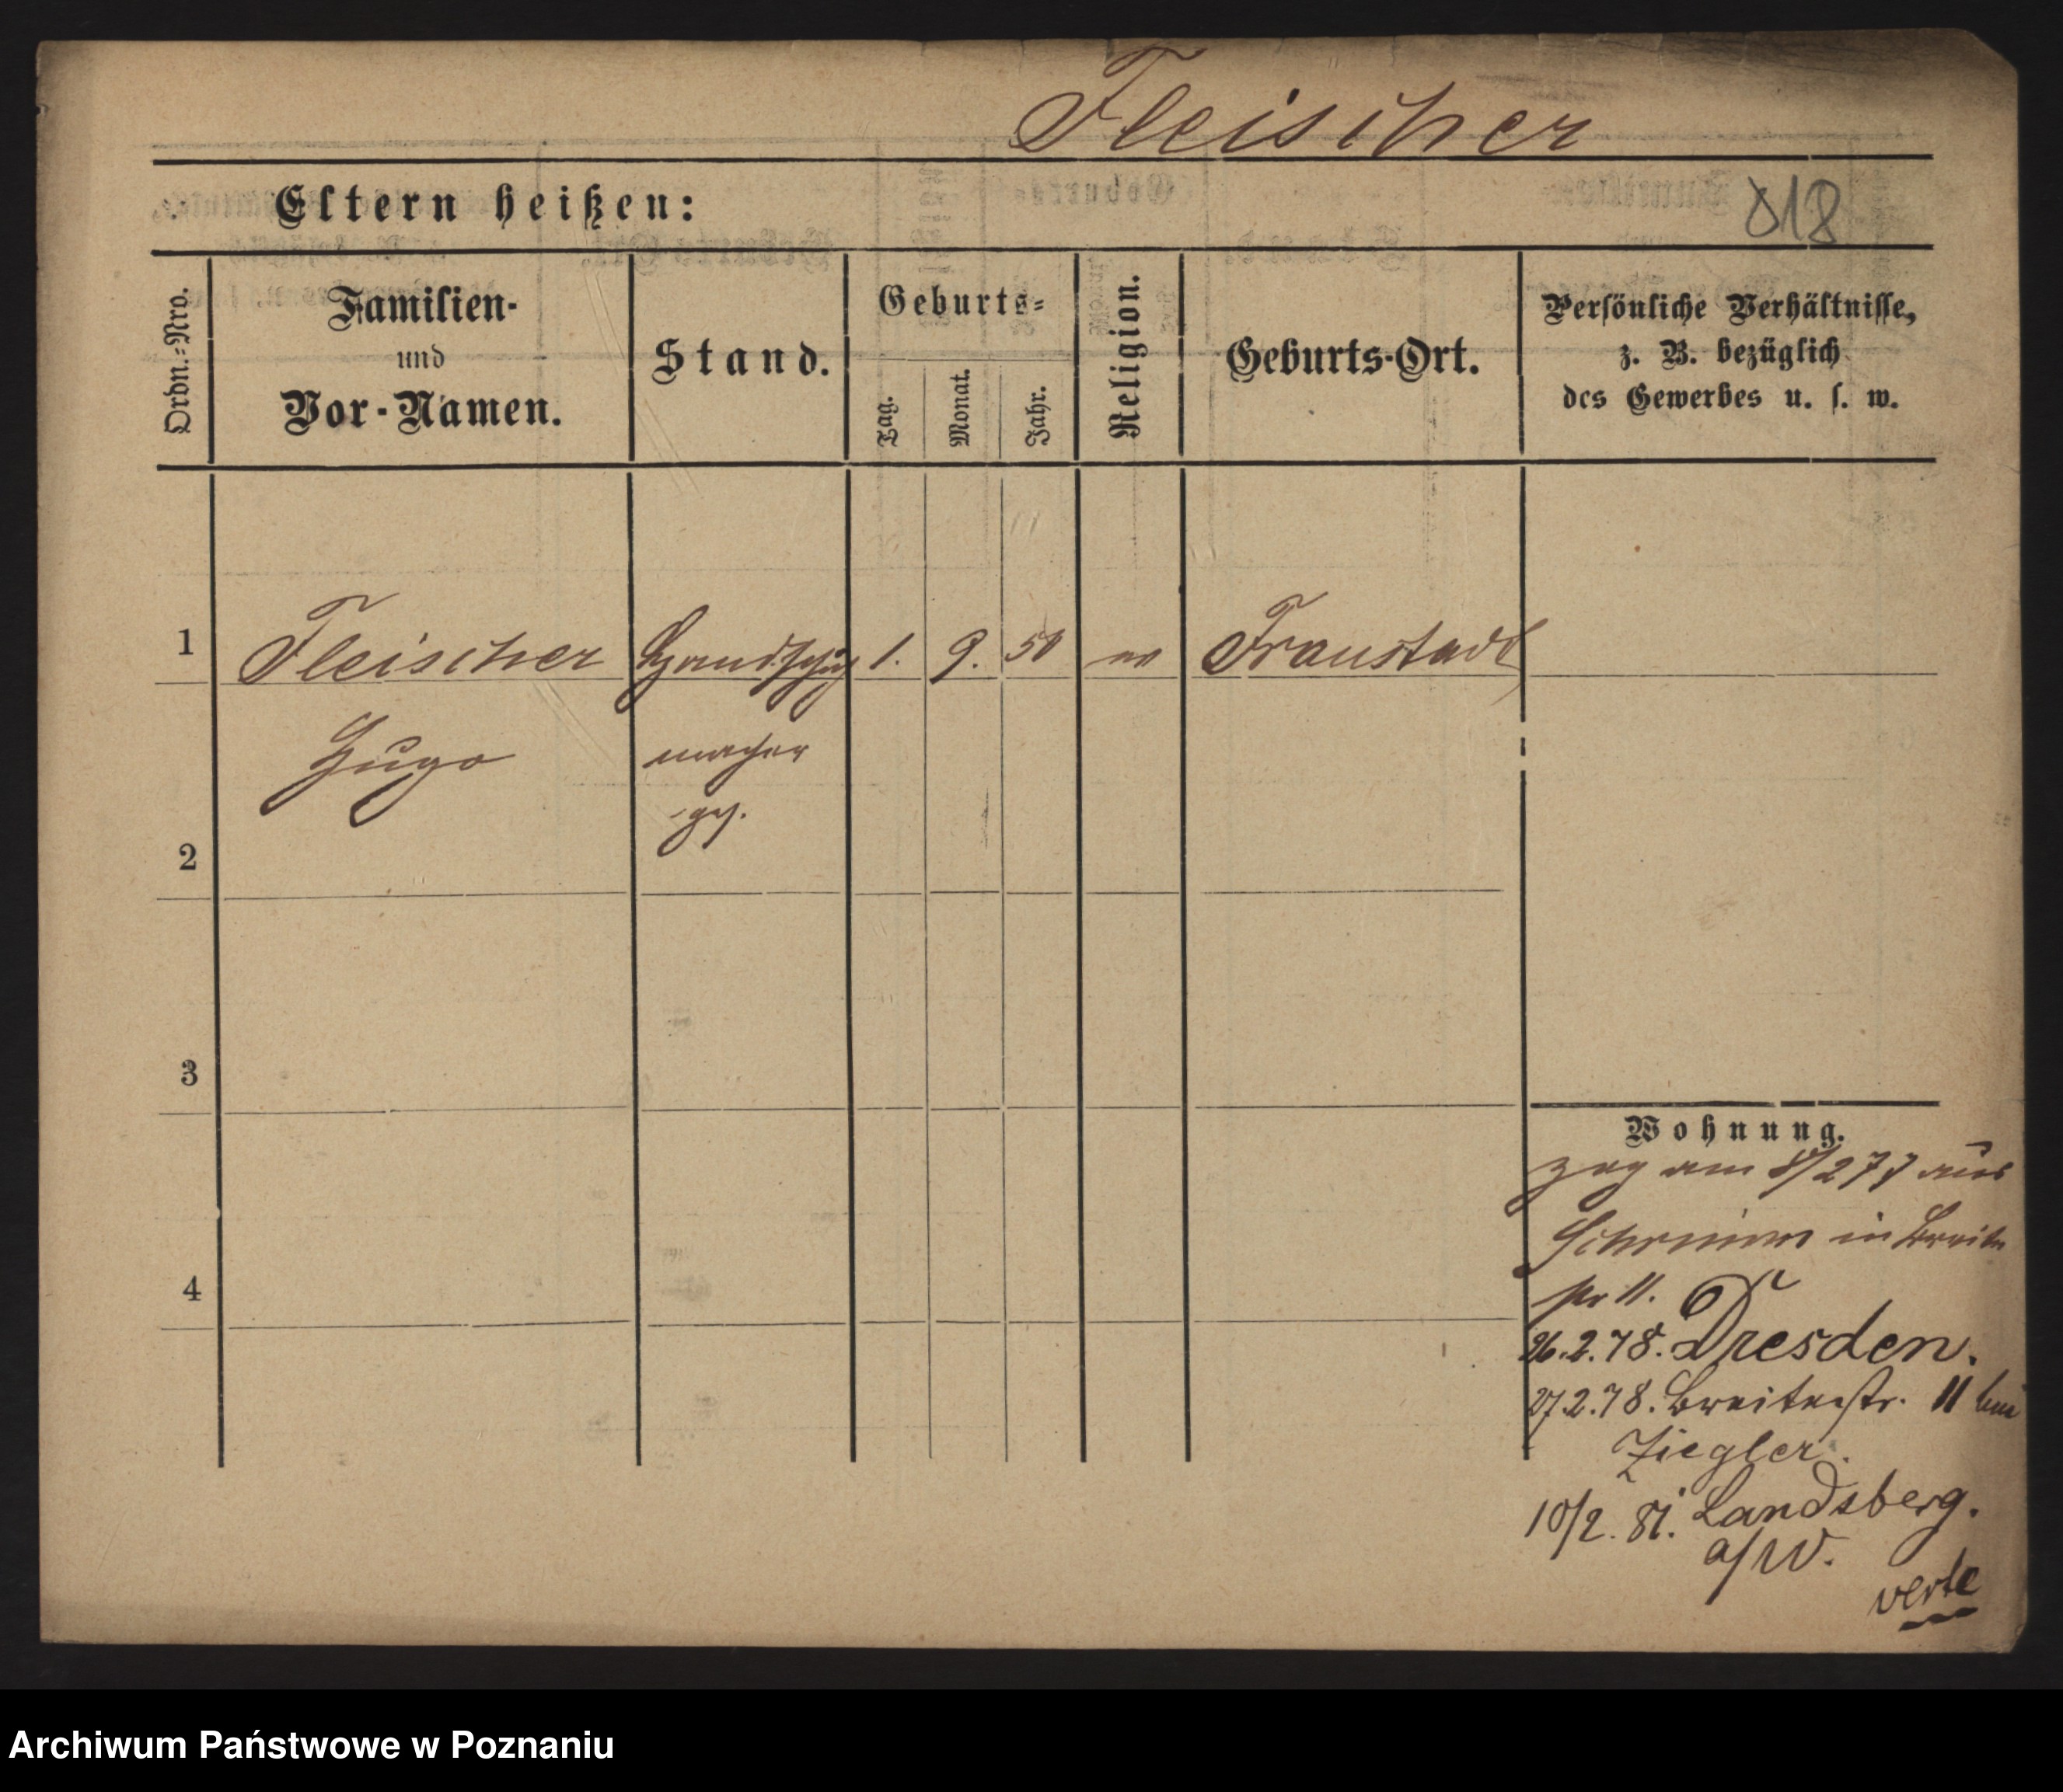 Fleischer
Eltern heißen:
818
Ordn.=Nro.
Familien-
und
Vor-Namen.
Stand.
Geburts=
Tag.
Monat.
Jahr.
Religion.
Geburts-Ort.
Persönliche Verhältnisse,
z. B. bezüglich
des Gewerbes u. s. w.
1
Fleischer Handschuh 1. 9. 50 ev Fraustadt
Hugo macher
ges.
2
3
4
Wohnung.
zog am 8/2 77 aus
Schrimm in Breite
str 11.
26.2.78. Dresden.
27.2.78. Breitestr. 11 bei
Ziegler.
10/2. 81. Landsberg.
a/W.
verte
Archiwum Państwowe w Poznaniu